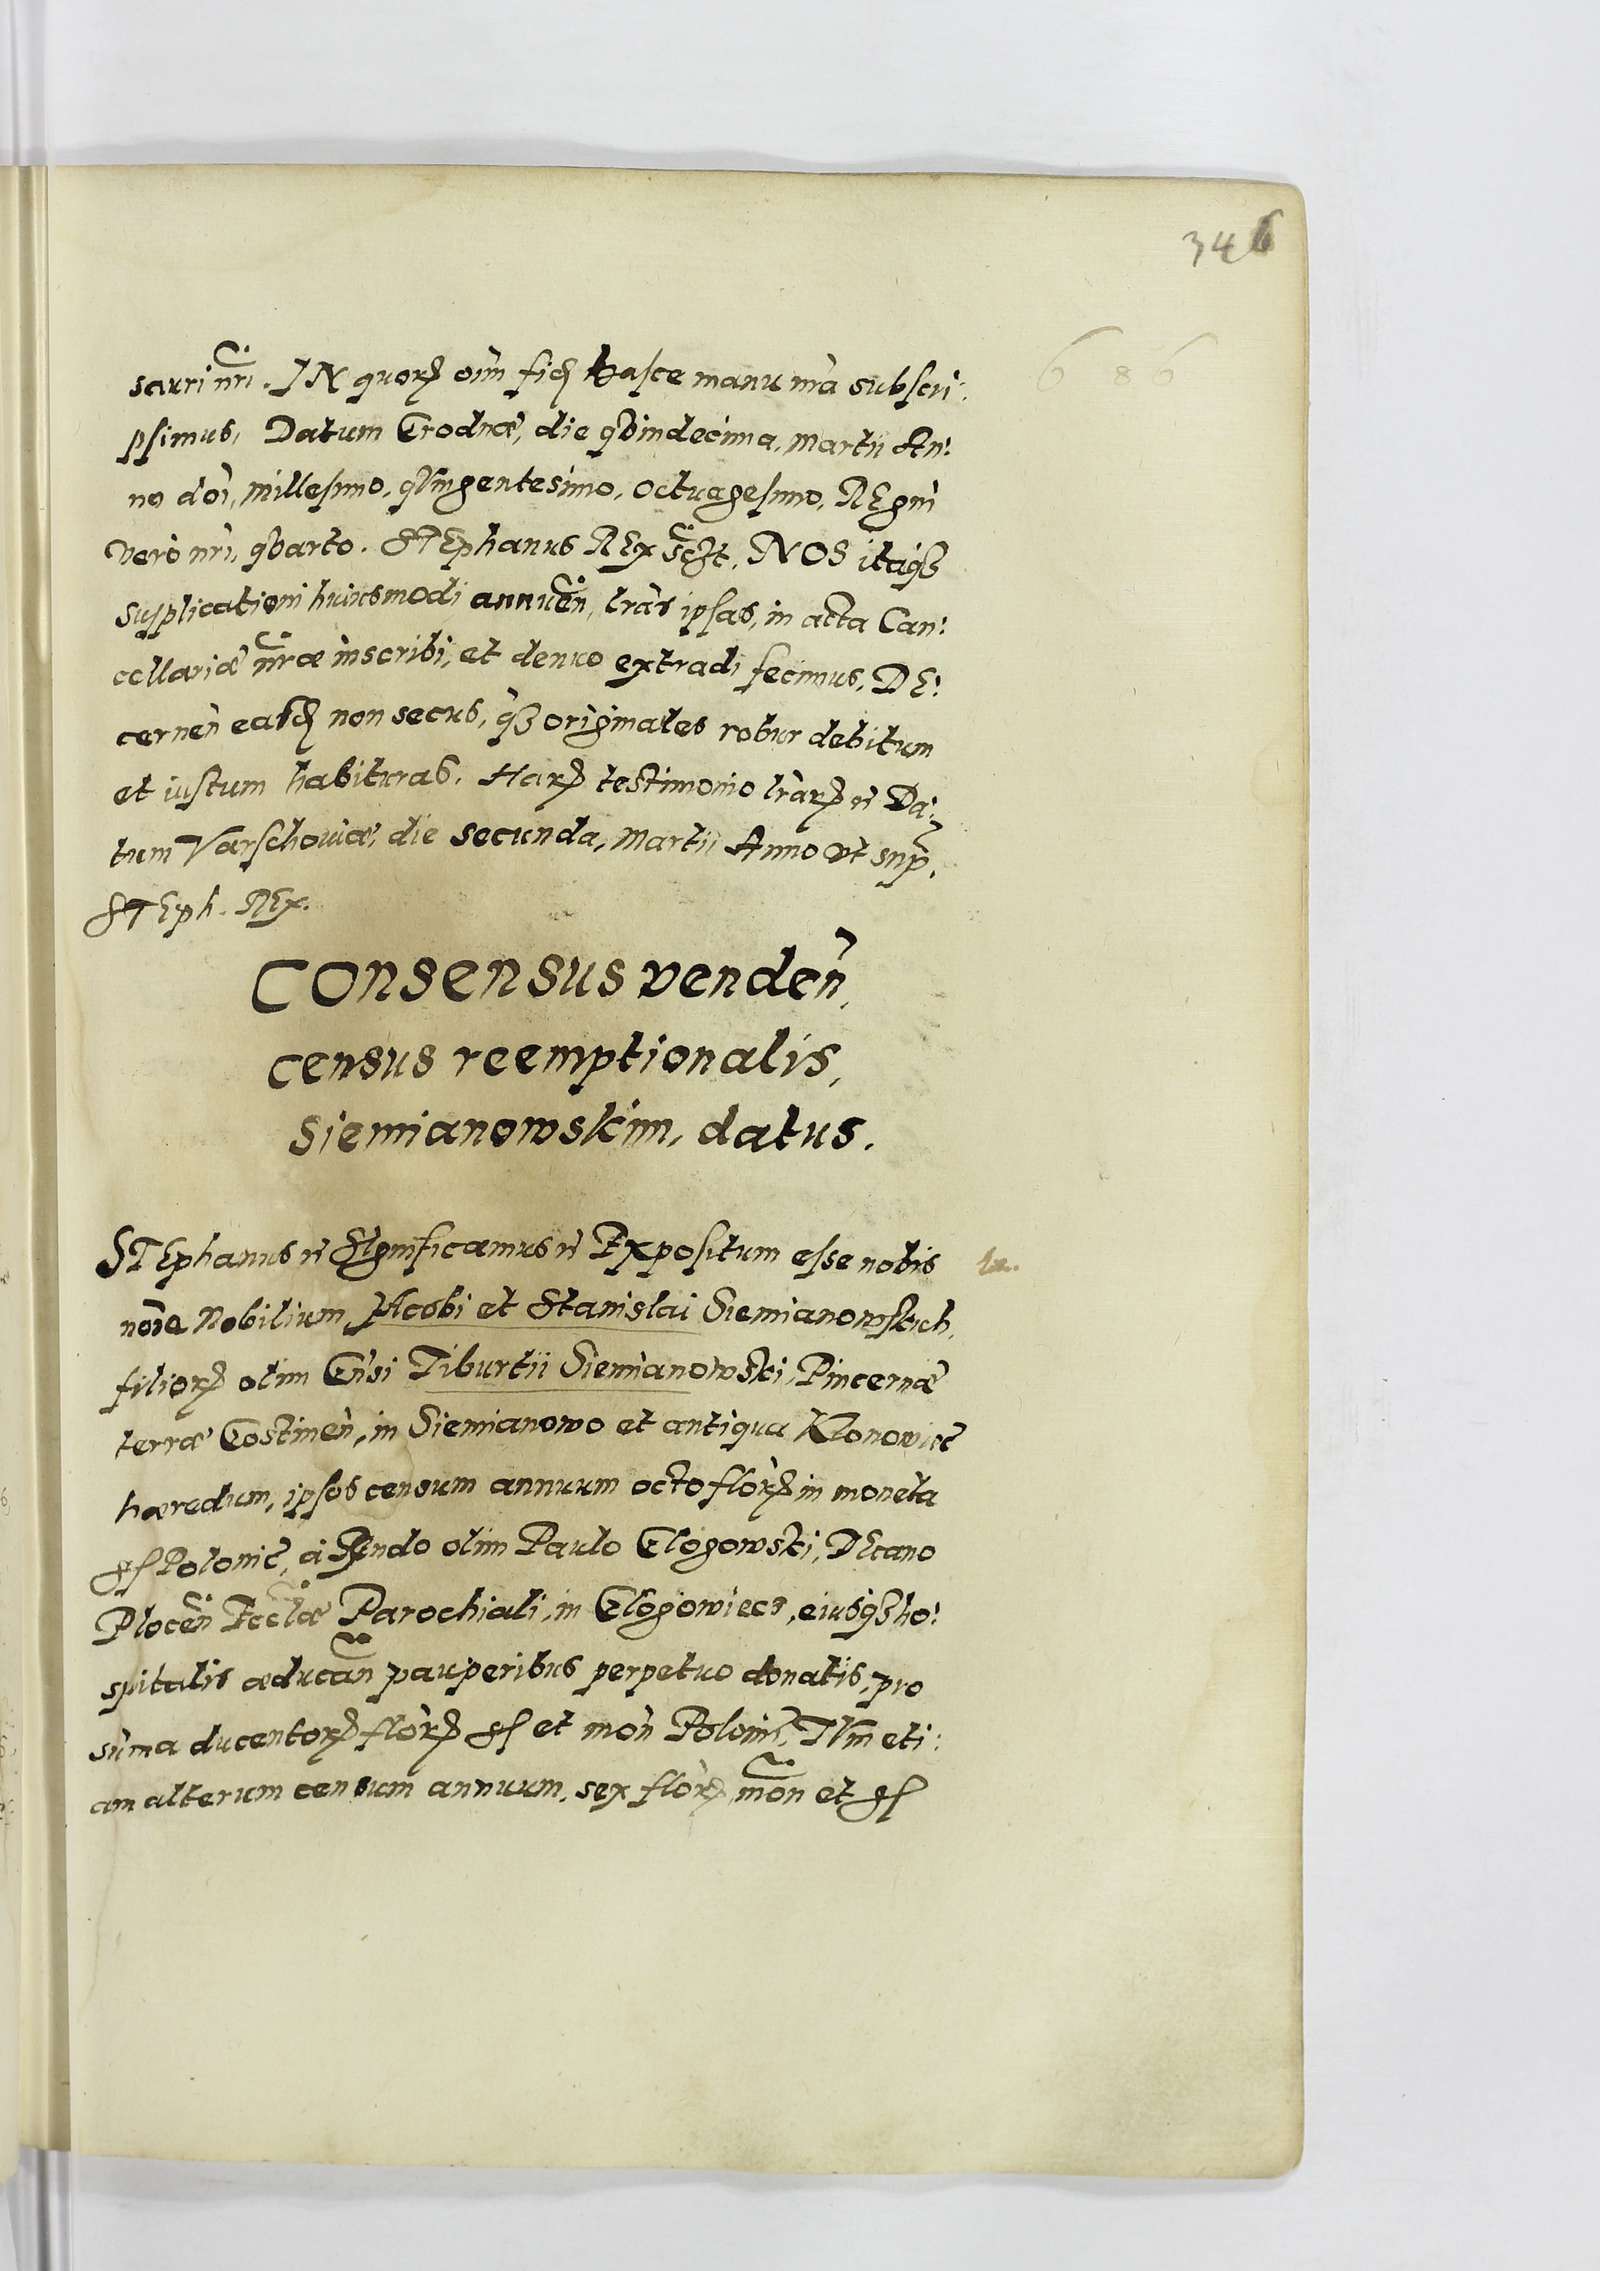 346
6 8 6
sauri nri. IN quorȝ oim fiđ hasce manu nra subscri:
psimus, Datum Grodnæ, die qvindecima, Martii An:
no doi, millesimo, qvingentesimo, octuagesimo, REgni
vero nri, qvarto. STEphanus REx sszt. NOS itaqȝ
supplicationi huiusmodi annuen, lras ipsas, in acta Can:
cellariæ nræ inscribi, et denuo extradi fecimus, DE:
cernen easđ non secus, qȝ originales robur debitum
et iustum habituras. Harȝ testimonio lrarȝ ec̃ Da:
tum Varschoviæ, die secunda, Martii Anno vt sup.
STEph. REx.
Consensus venden,
census reemptionalis,
Siemianowskim, datus.
STEphanus ec̃ SIgnificamus ec̃ Expositum esse nobis
noie Nobilium, JAcobi et Stanislai Siemianowskich,
filiorȝ olim Gnsi Tiburtii Siemianowski, Pincernæ
terræ Gostinen, in Siemianowo et antiqua Klonowiec
hæredum, ipsos censum annuum octo florȝ in moneta
gſ Polonic̃, à Rndo olim Paulo Glogowski, DEcano
Plocen Ecclæ Parochiali, in Glogowiecz, eiusqȝ ho:
spitalis æducan pauperibus perpetuo donatis, pro
suma ducentorȝ florȝ gſ et mon Polonic̃. TVm eti:
am alterum censum annuum, sex florȝ, mon et gſ